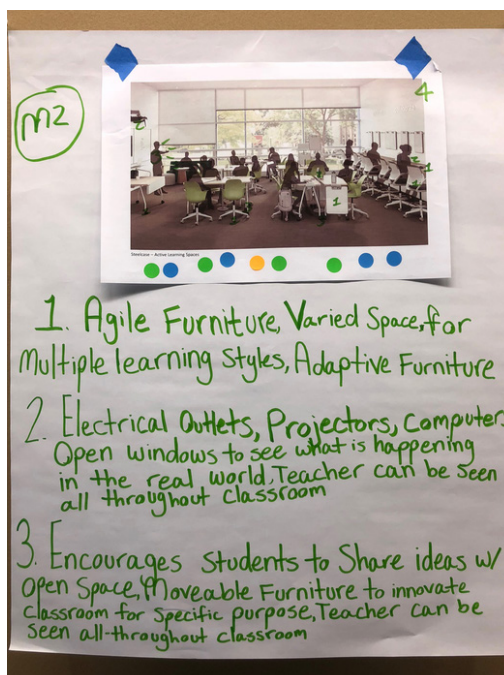 M2
4
1
Steelcase – Active Learning Spaces
1. Agile Furniture, Varied Space, for
Multiple learning Styles, Adaptive Furniture
2. Electrical Outlets, Projectors, Computer
Open windows to see what is happening
in the real world, Teacher can be seen
all throughout Classroom
3. Encourages Students to Share ideas w/
Open Space, Moveable Furniture to innovate
Classroom for Specific purpose, Teacher can be
Seen all-throughout classroom